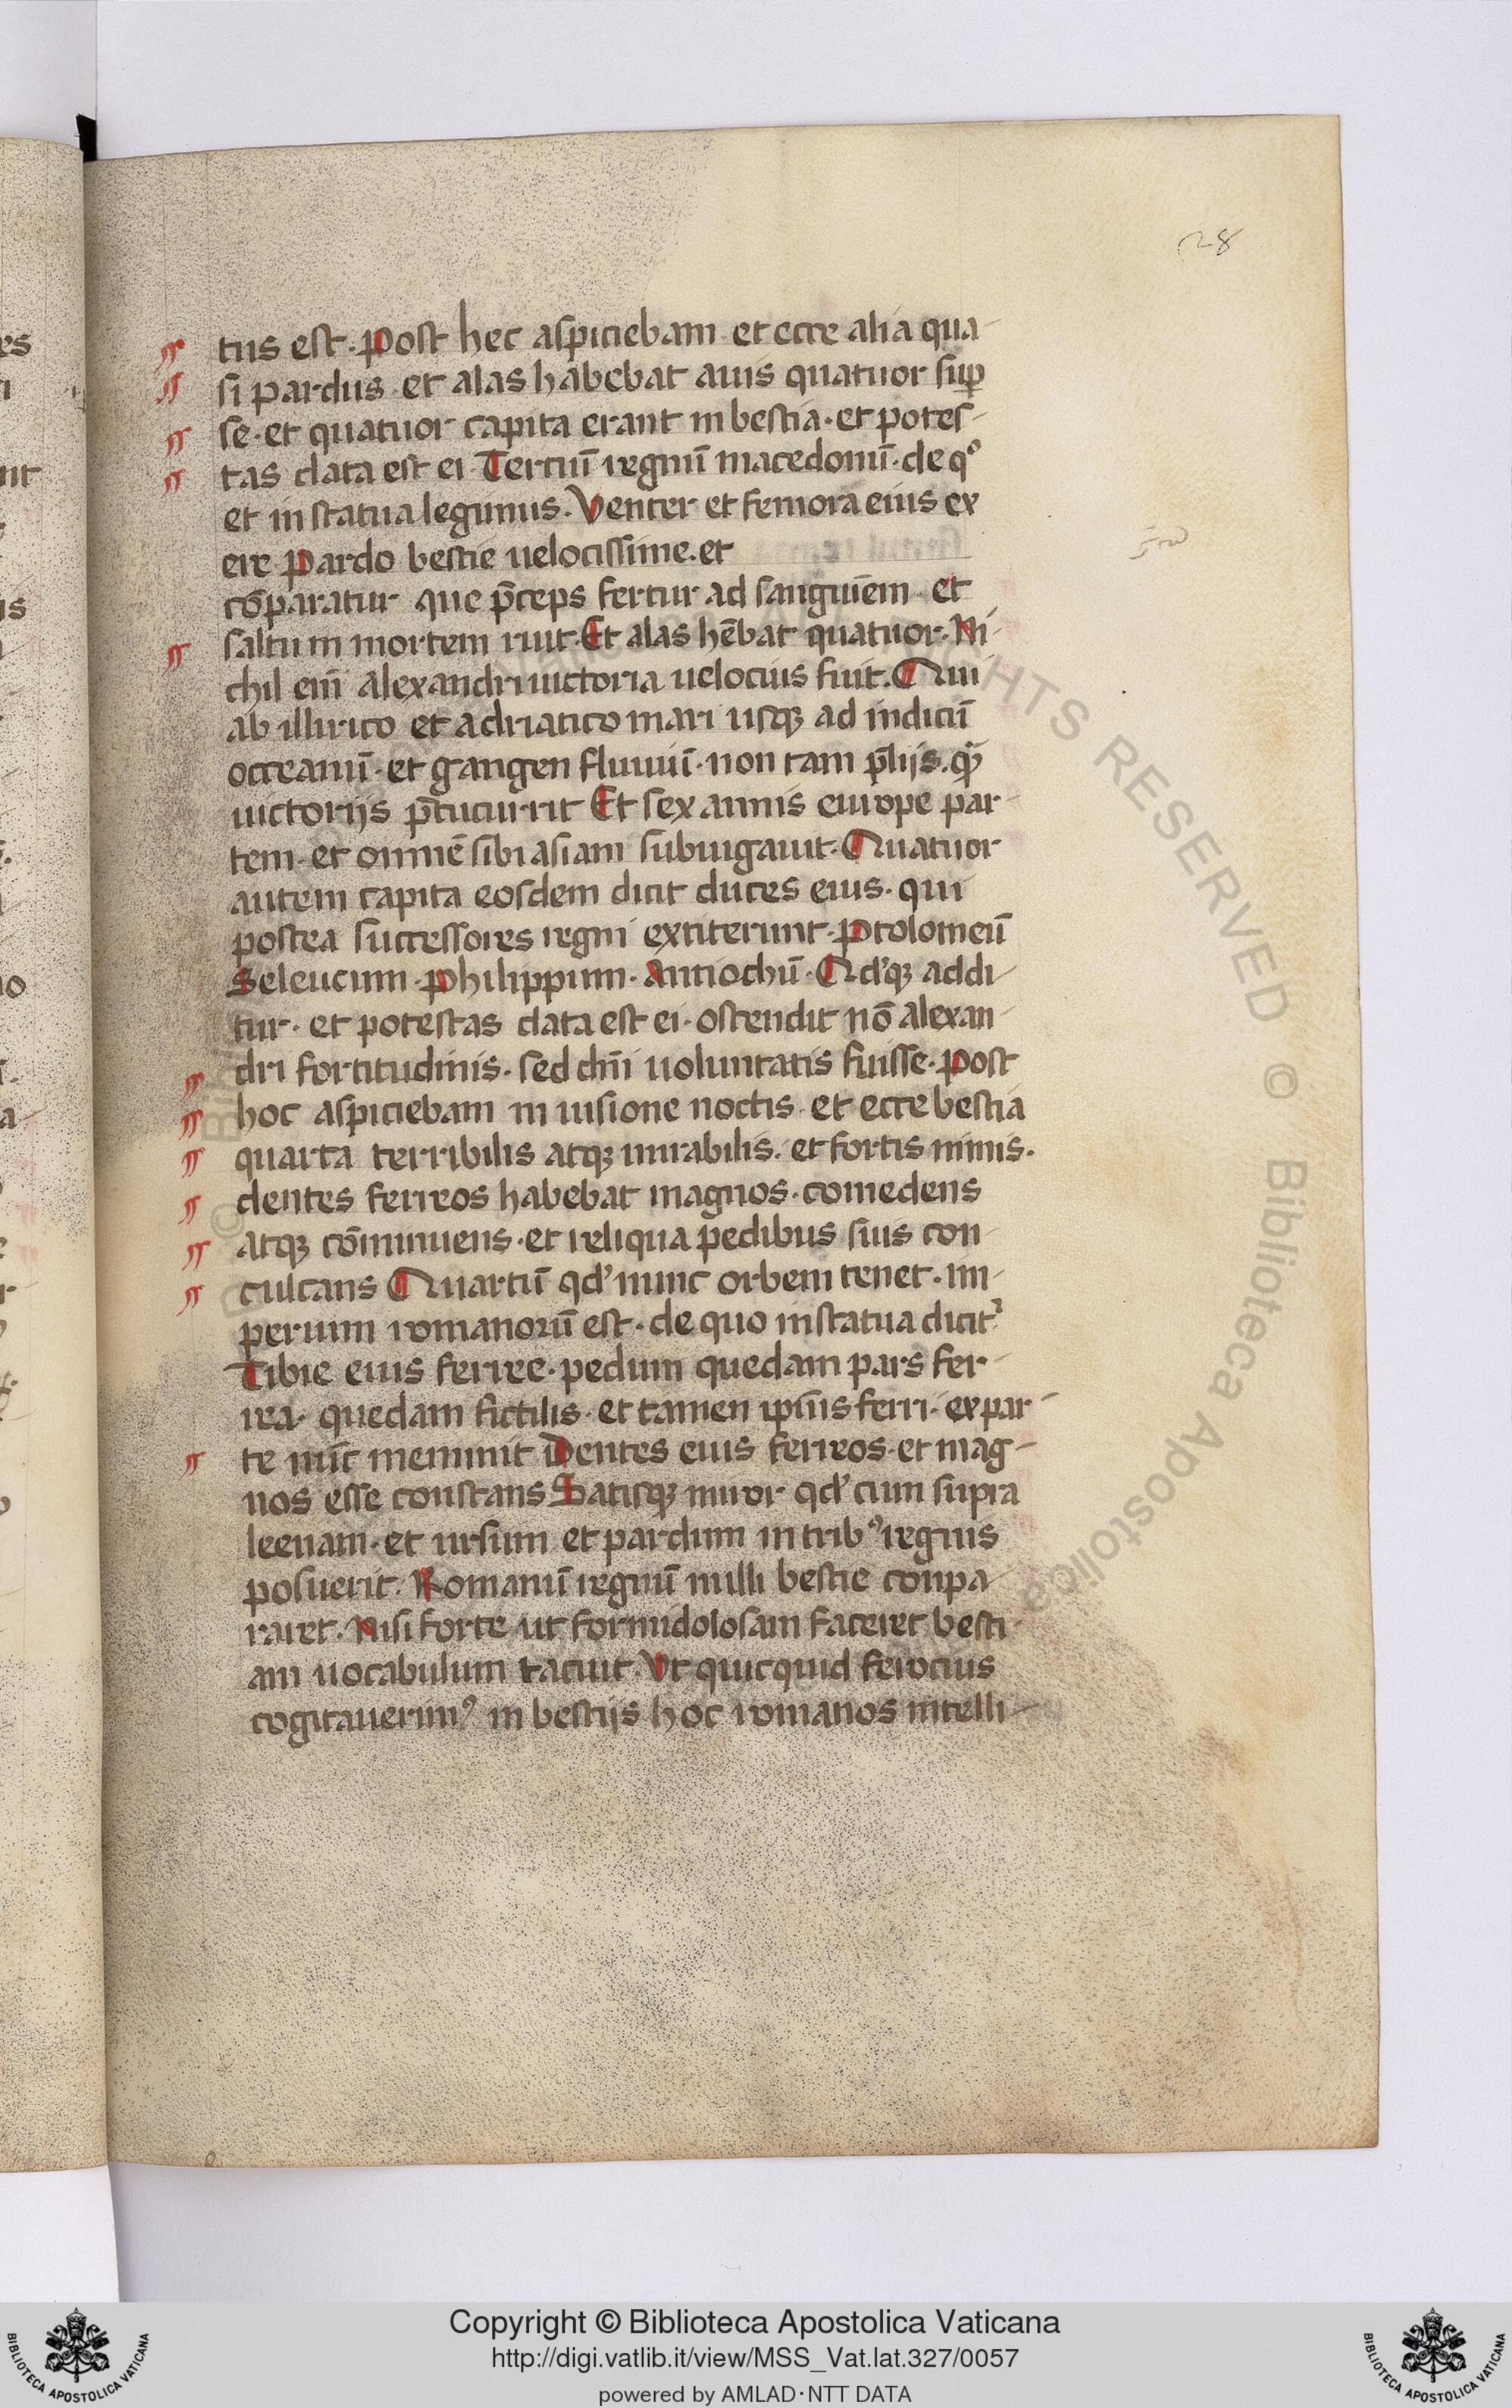 28
tus est. Post hec aspiciebam et ecce alia qua-
si pardus et alas habebat auis quatuor suꝑ
se. et quatuor capita erant in bestia. et potes-
tas data est ei. Terciū regnū macedonū. de qͦ
et in statua legimus. Venter et femora eius ex
ere pardo bestie uelocissime. et
cōparatur que p̄ceps fertur ad sanguīem. et
saltu in mortem ruit. Et alas hēbat quatuor. Ni-
chil eni̅ alexandri uictoria uelocius fuit. Qui
ab illirico et adriatico mari usqꝫ ad indicū
occeanū. et gangen fluuiū. non tam p̄lijs. qm̄
uictorijs p̄cucurrit Et sex annis europe par-
tem. et omnē sibi asiam subiugauit. Quatuor
autem capita eosdem dicit duces eius. qui
postea successores regni extiterunt. Ptolomeū
Seleucum. Philippum. Antiochū. Qd'qꝫ addi-
tur. et potestas data est ei. ostendit nō alexan-
dri fortitudinis. sed dn̄i uoluntatis fuisse. Post
hoc aspiciebam in uisione noctis. et ecce bestia
quarta terribilis atqꝫ mirabilis. et fortis nimis.
dentes ferreos habebat magnos. comedens
atqꝫ cōminuens. et reliqua pedibus suis con-
culcans Quartū qd' nunc orbem tenet. im-
perium romanorū est. de quo in statua dicit᷑
Tibie eius ferree. pedum quedam pars fer-
rea. quedam fictilis. et tamen ip̄ius ferri. ex par-
te nūc meminit Dentes eius ferreos. et mag-
nos esse constans Satisqꝫ miror qd' cum supra
leenam. et ursum et pardum in tribꝰ regnis
posuerit. Romanū regnū nulli bestie conpa-
raret. Nisi forte ut formidolosam faceret besti-
am uocabulum tacuit. Vt quicquid ferocius
cogitauerimꝰ in bestijs hoc romanos intelli-
RIGHTS RESERVED © Biblioteca Apostolica
Copyright © Biblioteca Apostolica Vaticana
http://digi.vatlib.it/view/MSS_Vat.lat.327/0057
powered by AMLAD·NTT DATA
BIBLIOTECA APOSTOLICA VATICANA
BIBLIOTECA APOSTOLICA VATICANA